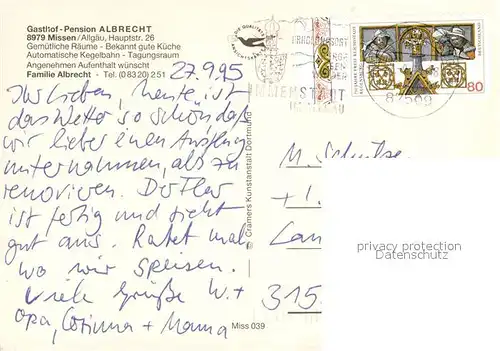 Gasthof-Pension ALBRECHT
8979 Missen/Allgäu, Hauptstr. 26
Gemütliche Räume - Bekannt gute Küche
Automatische Kegelbahn - Tagungsraum
Angenehmen Aufenthalt wünscht
Familie Albrecht - Tel. (08320) 251
27.9.95
Ihr Lieben, heute ist
das Wetter so schön daß
wir lieber einen Ausflug
unternahmen, als zu
renovieren. Der Flur
ist fertig und sieht
gut aus. Ratet mal
wo wir speisen.
Viele Grüße W. +
Opa, Corinna + Mama
© Cramers Kunstanstalt Dortmund
Miss 039
IMMENSTADT
IM ALLGÄU
87509
80
M. Schulze
+
315
privacy protection
Datenschutz